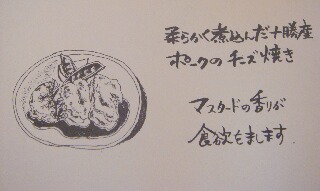 柔らかく煮込んだ十勝産
ポークのチーズ焼き
マスタードの香りが
食欲をまします